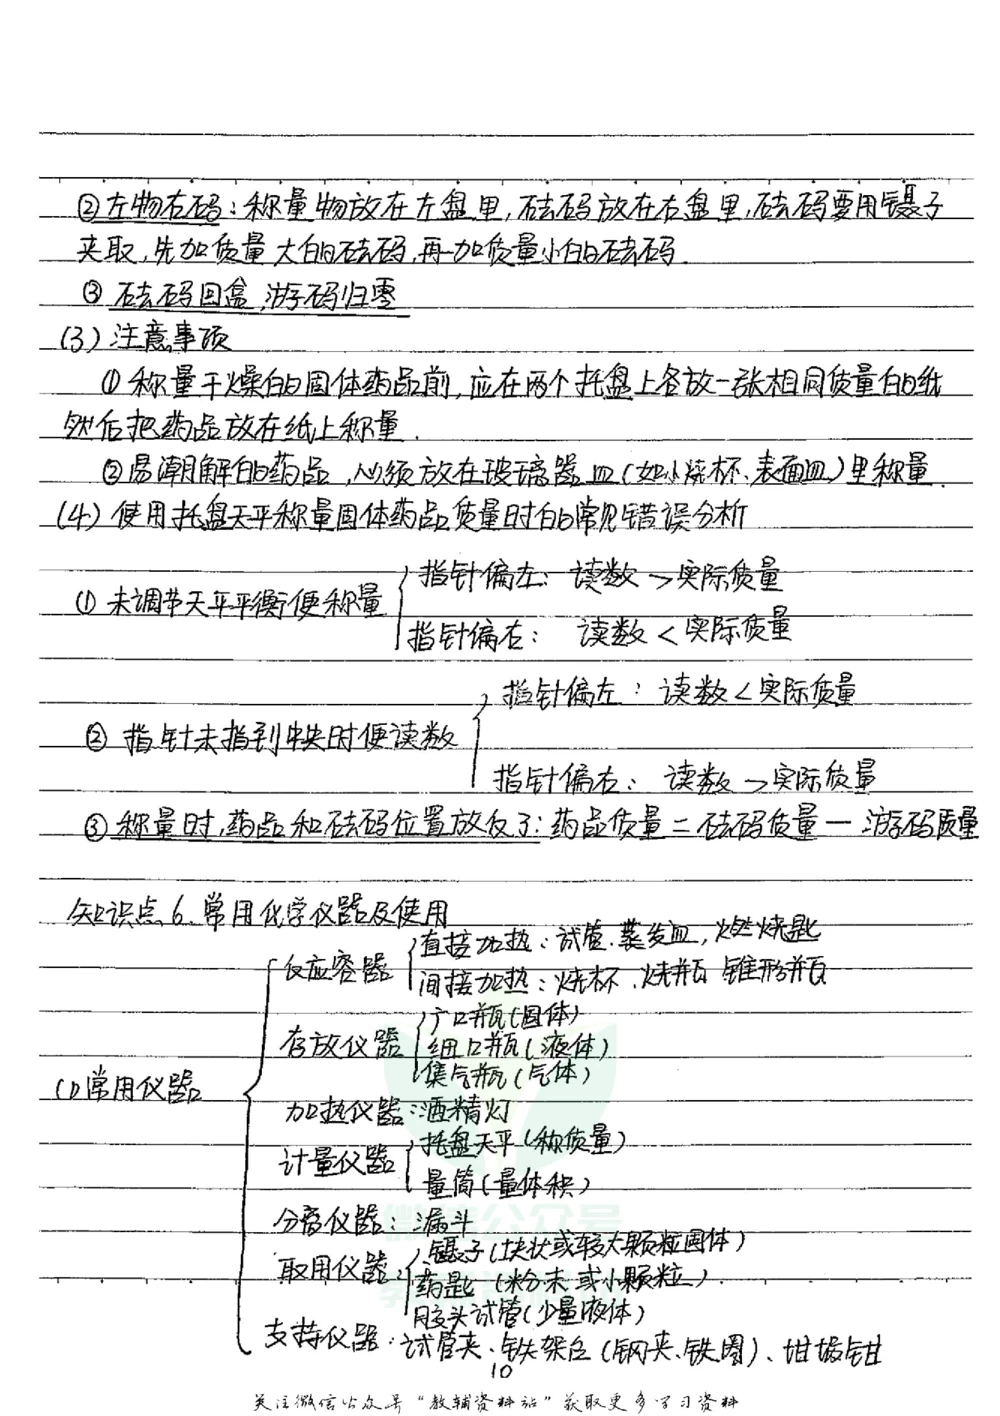 ②左物右码：称量物放在左盘里，砝码放在右盘里，砝码要用镊子
夹取，先加质量大的砝码，再加质量小的砝码．
③砝码回盒，游码归零
(3)注意事项
①称量干燥的固体药品前，应在两个托盘上各放一张相同质量的纸
然后把药品放在纸上称量．
②易潮解的药品，必须放在玻璃器皿(如小烧杯、表面皿)里称量．
(4)使用托盘天平称量固体药品质量时的常见错误分析
指针偏左：读数＞实际质量
①未调节天平平衡便称量
指针偏右：读数＜实际质量
指针偏左：读数＜实际质量
②指针未指到中央时便读数
指针偏右：读数＞实际质量
③称量时，药品和砝码位置放反了：药品质量＝砝码质量－游码质量
知识点6．常用化学仪器及使用
直接加热：试管、蒸发皿，燃烧匙
反应容器
间接加热：烧杯、烧瓶 锥形瓶
广口瓶(固体)
存放仪器
细口瓶(液体)
集气瓶(气体)
(1)常用仪器
加热仪器：酒精灯
托盘天平(称质量)
计量仪器
量筒(量体积)
分离仪器：漏斗
镊子(块状或较大颗粒固体)
取用仪器
药匙(粉末或小颗粒)
胶头试管(少量液体)
支持仪器：试管夹、铁架台(钢夹、铁圈)、坩埚钳
10
关注微信公众号"教辅资料站"获取更多学习资料